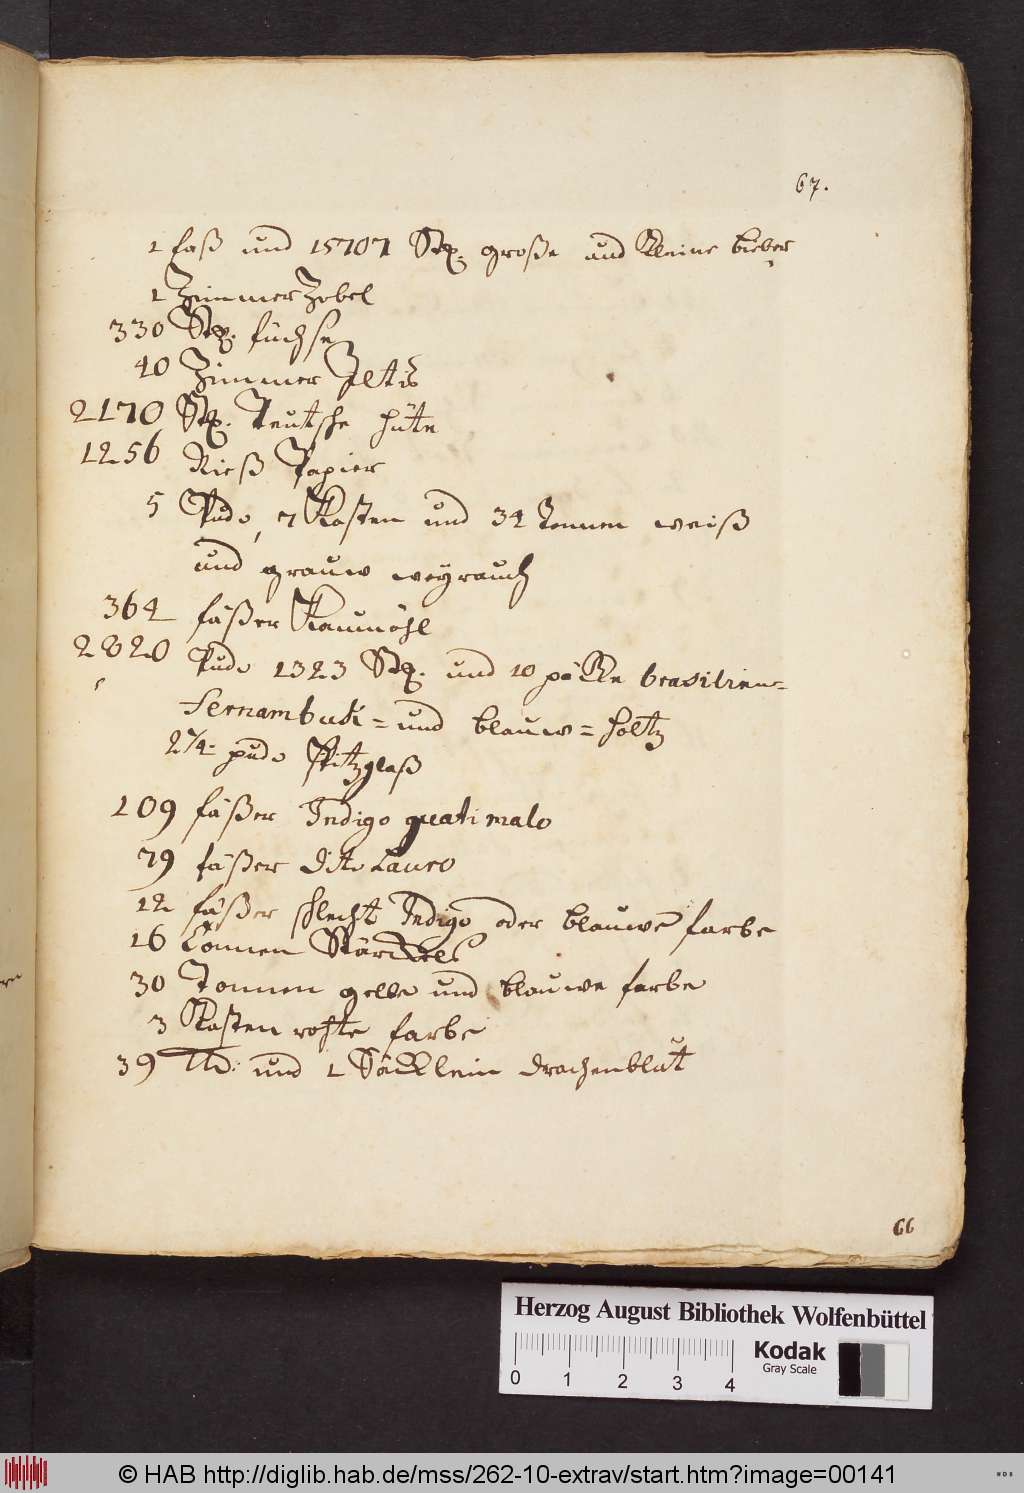 67.
1 faß und 15707 Stk. große und Kleine bieber
1 Zimmer Zobel
330 Stk. füchse
40 Zimmer Iltis
2170 Stk. Teutsche hüte
1256 Rieß Papier
5 Pudt, 7 Kasten und 34 Tonnen weiß
und grauw weyrauch
364 fäßer Baumöhl
2820 Pudt 1323 Stk. und 10 päkke brasilien=
fernambuck= und blauw= holtz
2 1/4. pudt Spitzglaß
109 fäßer Indigo guatimalo
79 fäßer dito Lauro
12 fäßer schlecht Indigo oder blauwe farbe
16 Tonnen Stärckels
30 Tonnen gelbe und blauwe farbe
3 Kasten rothe farbe
39 und 1 Säcklein drachenblut
66
Herzog August Bibliothek Wolfenbüttel
Kodak
Gray Scale
0 1 2 3 4
© HAB http://diglib.hab.de/mss/262-10-extrav/start.htm?image=00141